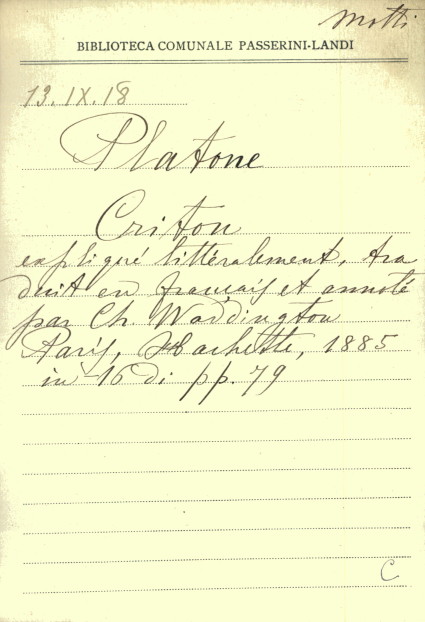 Motti
BIBLIOTECA COMUNALE PASSERINI-LANDI
13.IX.18
Platone
Criton
expliqué littéralement, tra
duit en français et annoté
par Ch. Waddington
Paris, Hachette, 1885
in-16 di pp. 79
C